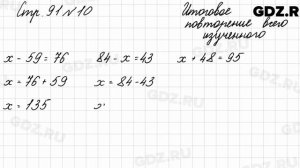 Стр. 91 №10
Итоговое
повторение всего
изученного
GDZ.RU
x - 59 = 76
x = 76 + 59
x = 135
84 - x = 43
x = 84 - 43
x
x + 48 = 95